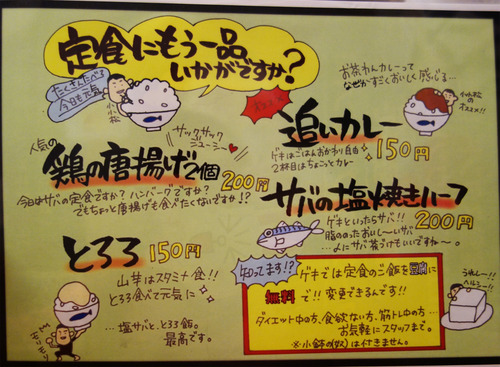 定食にもう一品
いかがですか?
たくさんたべる
今日も元気
小松
お茶わんカレーって
なぜかすごくおいしく感じる…
小松の
オススメ!!
オススメ
追いカレー
150円
ゲキはごはんおかわり自由
2杯目はちょこっとカレー
サックサック
ジューシー
人気の
鶏の唐揚げ2個
200円
今日はサバの定食ですか?ハンバーグですか?
でもちょっと唐揚げも食べたくないですか!?
サバの塩焼きハーフ
200円
ゲキといったらサバ!!
脂ののったおいし〜いサバ
…〆にサバ茶づけもいいですね〜。
とろろ
150円
山芋はスタミナ食!!
とろろ食べて元気に
…塩サバと、とろろ飯。
最高です。
知ってます!?
ゲキでは定食のご飯を豆腐に
無料で!!変更できるんです!!
ダイエット中の方、食欲ない方、筋トレ中の方…
お気軽にスタッフまで。
※小鉢の(奴)は付きません。
うれし〜!!
ヘルシー!!